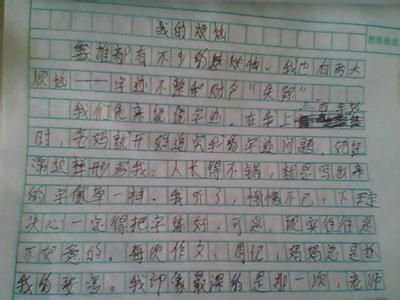 我的烦恼
我谁都有不少的烦恼。我也有两大
烦恼——字迹不整和财产“失踪”
我们先来说说字迹。在我上三年级
时，老妈就开始追究我的字迹问题，她经
常这样形容我：人长得不错，就是写出来
的字像草一样。我听了，惭愧不已，下定
决心一定得把字练好。可是，现实往往是
不如意的。每次作文，周记，妈妈总是
我的
我印象最深的是那一次，老师